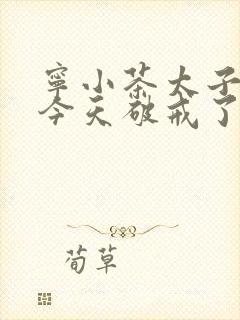 寧小茶太子
今天破戒了
荀草